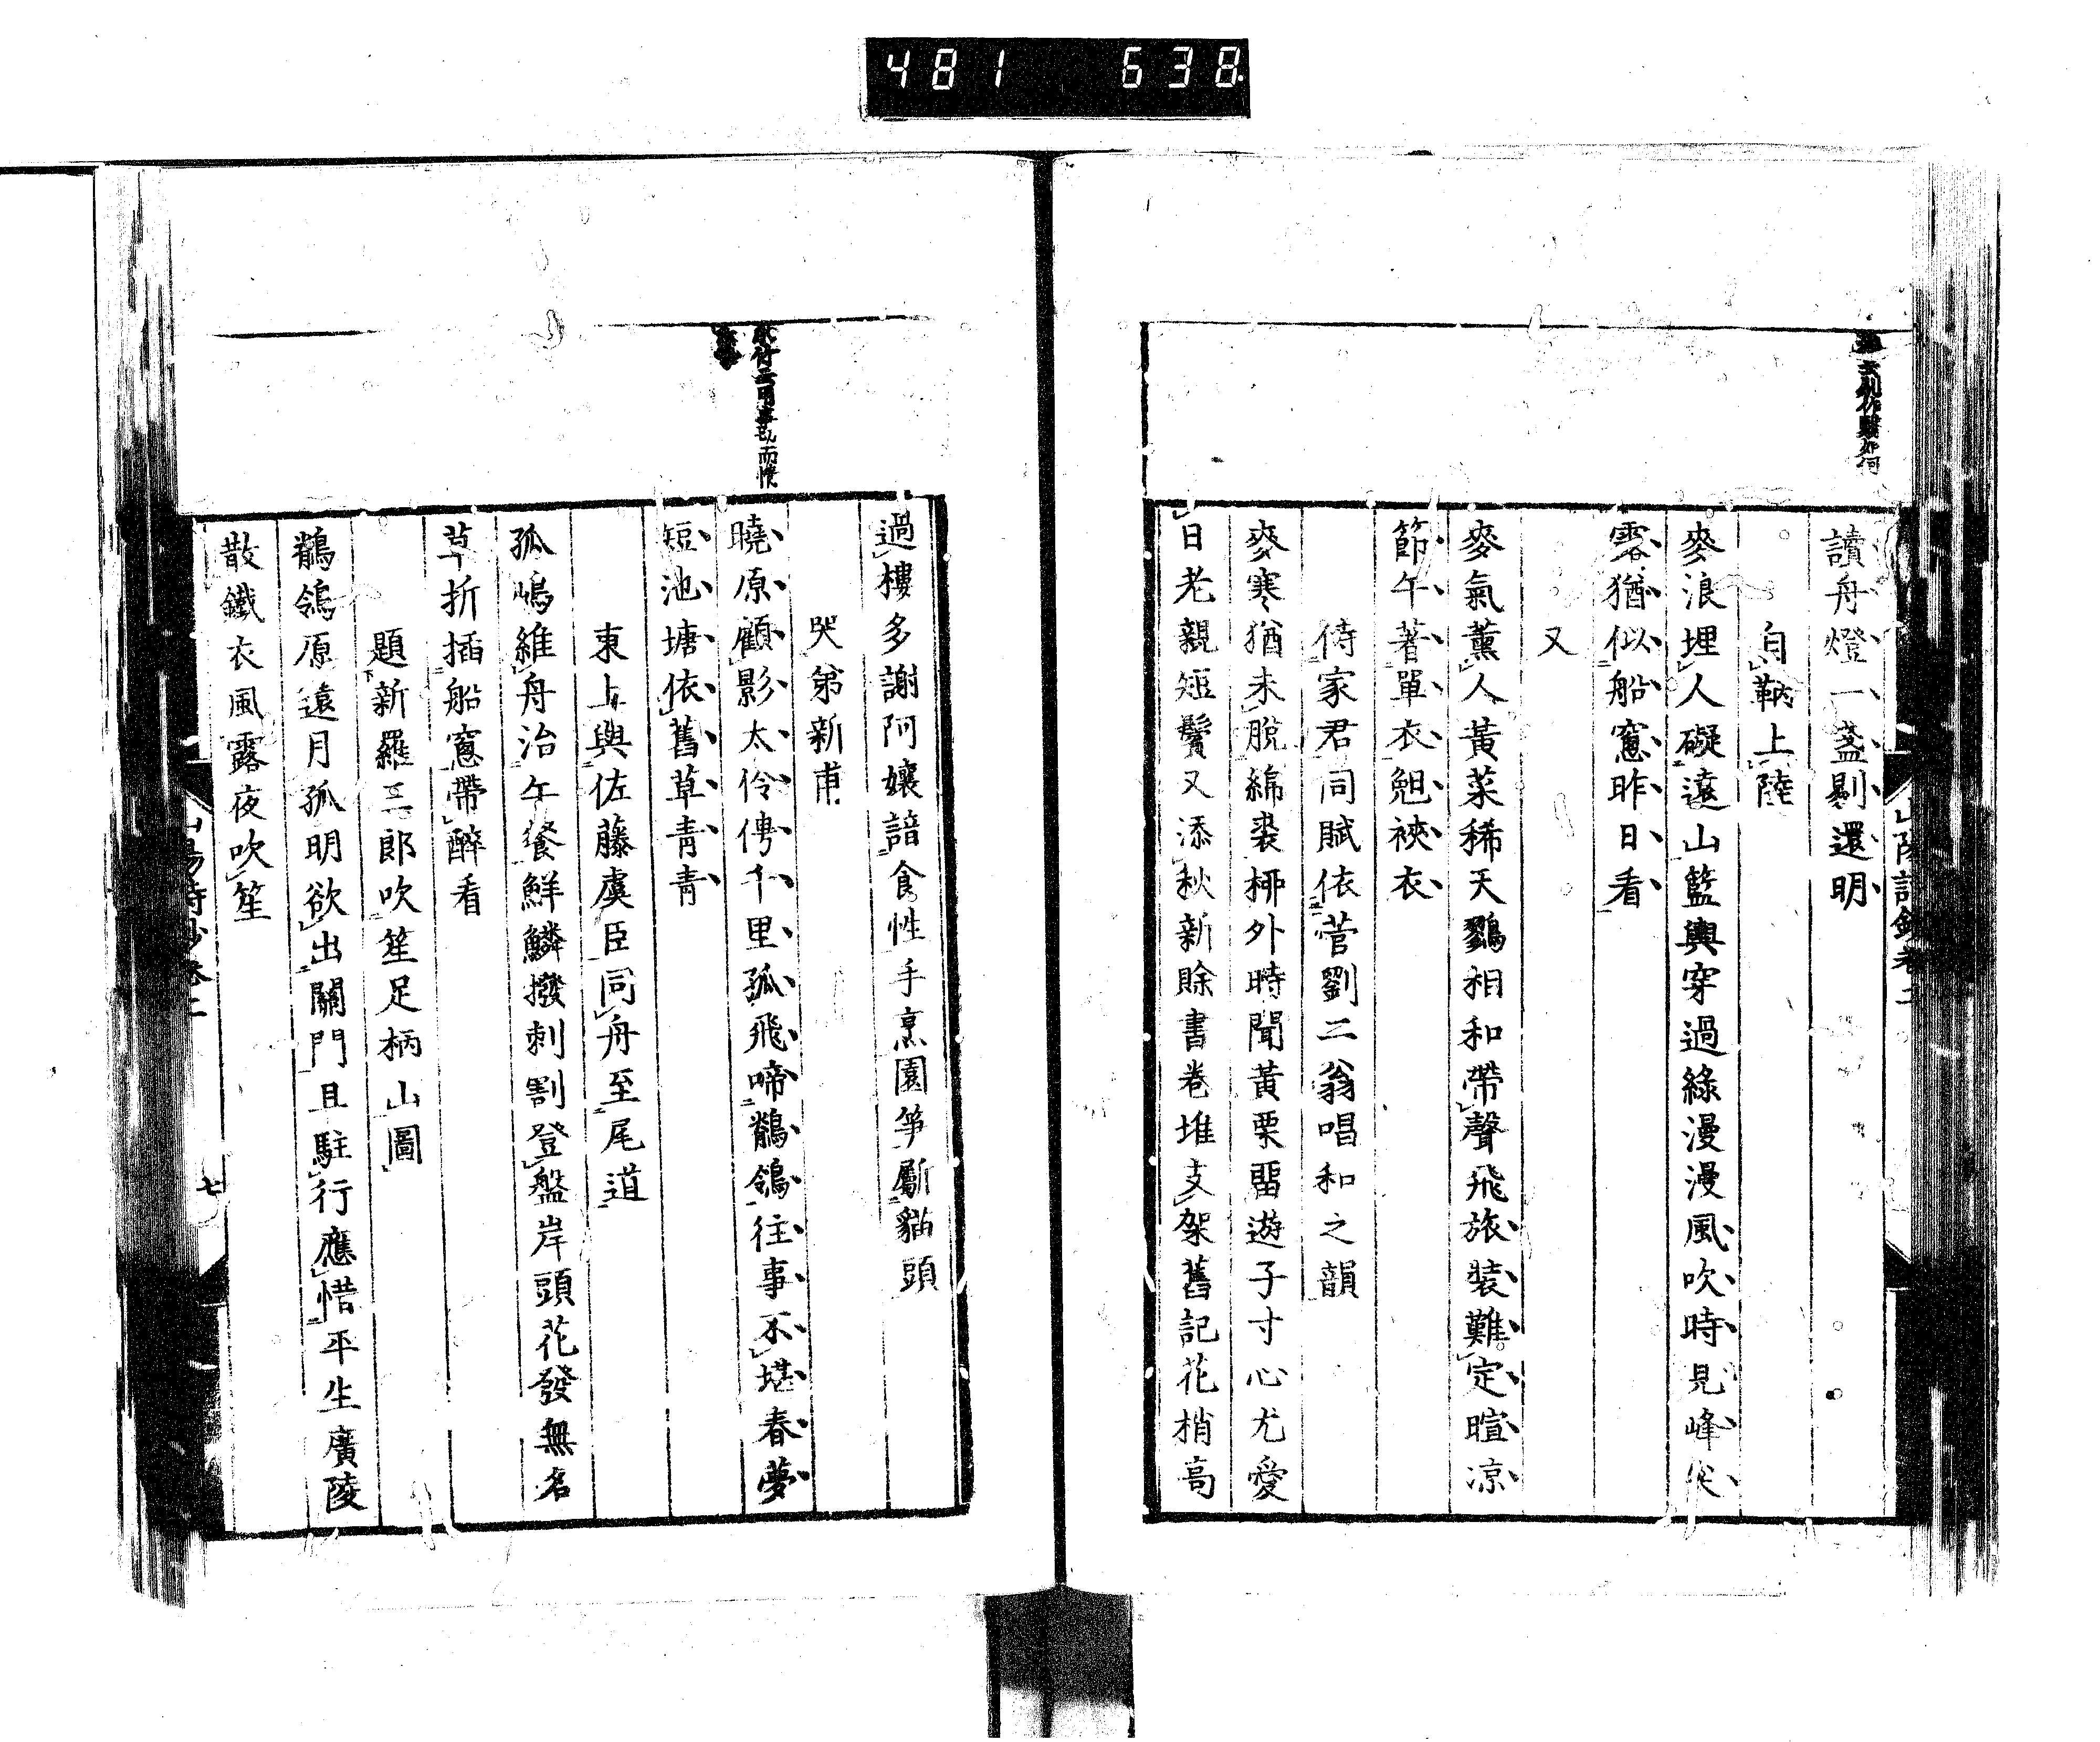 481 638
讀舟燈一盞剔還明
自鞆上陸
麥浪埋人礙遠山籃輿穿過綠漫漫風吹時見峰尖
露猶似船窻昨日看
又
麥氣薰人黃菜稀天鷚相和帶聲飛旅裝難定暄凉
節午著單衣兜裌衣
侍家君同賦依菅劉二翁唱和之韻
麥寒猶未脫綿裘栁外時聞黃栗畱遊子寸心尤愛
日老親短鬢又添秋新賒書卷堆支架舊記花梢高
山陽詩鈔卷二
過樓多謝阿孃諳食性手烹園笋斸貓頭
哭弟新甫
曉原顧影太伶俜千里孤飛啼鶺鴒往事不堪春夢
短池塘依舊草青青
東上與佐藤虞臣同舟至尾道
孤嶋維舟治午餐鮮鱗撥刺割登盤岸頭花發無名
草折插船窻帶醉看
題新羅三郎吹笙足柄山圖
鶺鴒原遠月孤明欲出關門且駐行應惜平生廣陵
散鐵衣風露夜吹笙
山陽詩鈔卷二
七